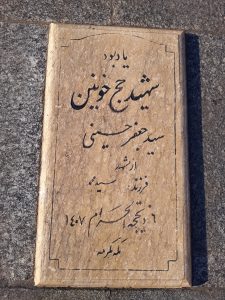 یادبود
شهید حج خونین
سید جعفر حسینی
از مشهد
فرزند: سید محمد
۶ ذیحجة الحرام ۱۴۰۷
مکه مکرمه